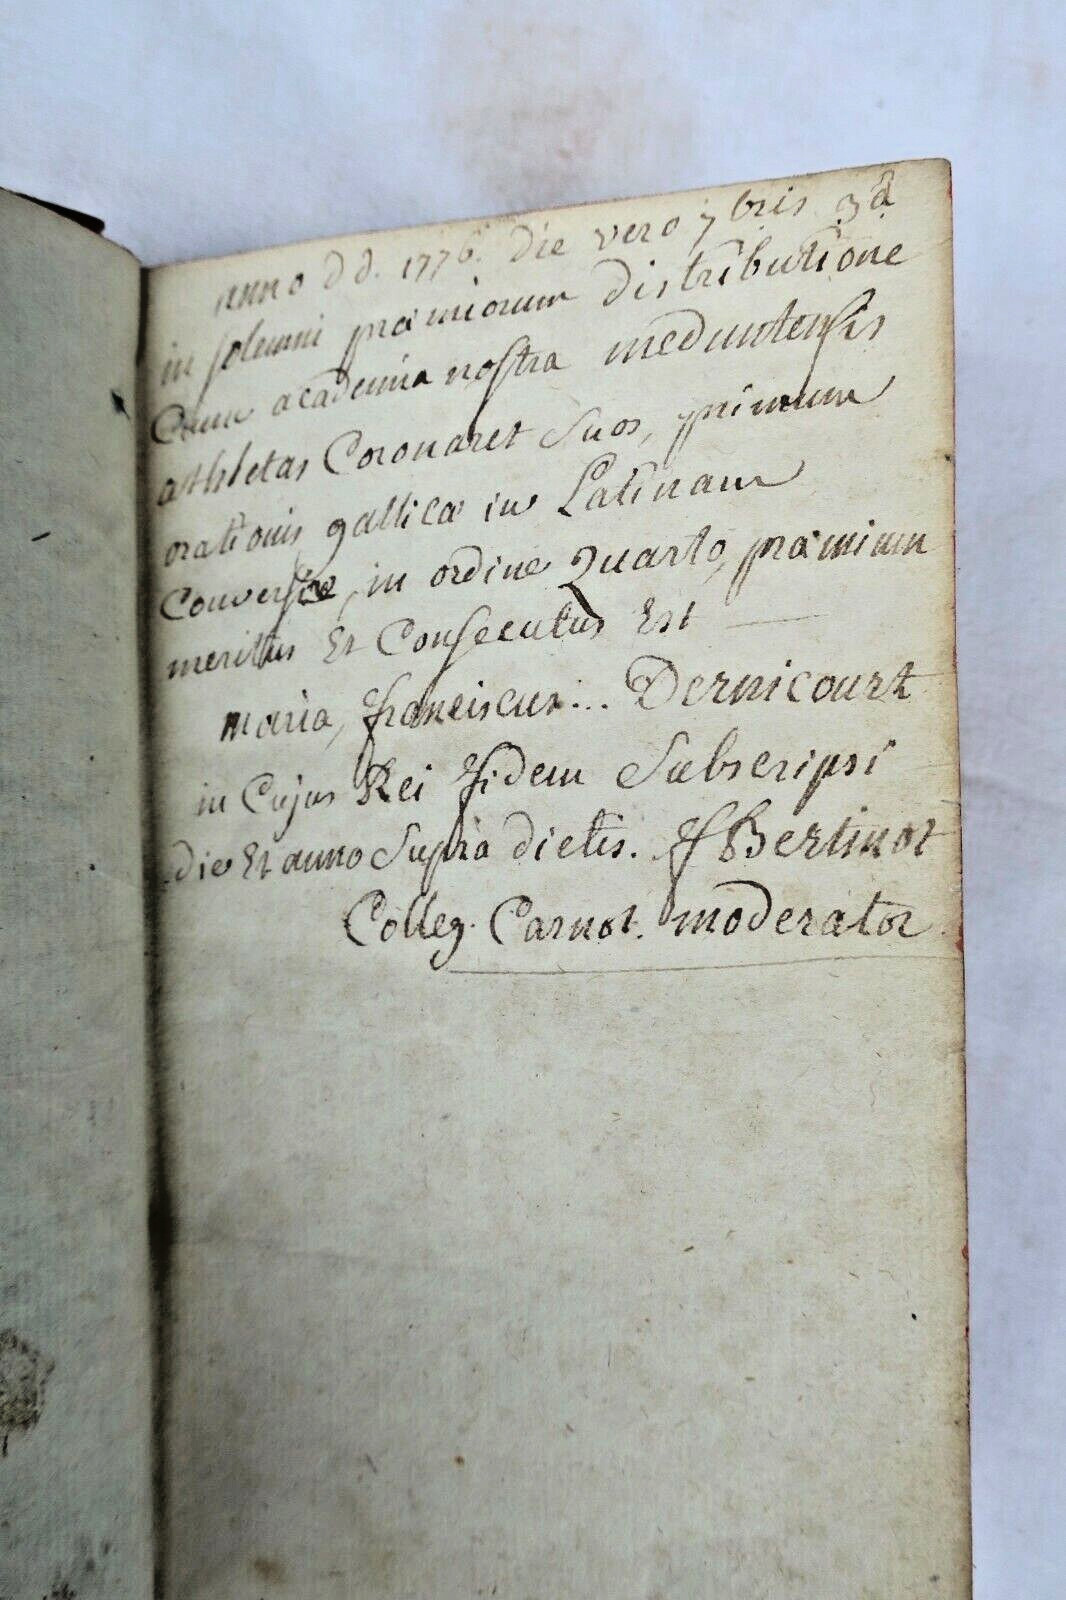 anno d d. 1776. die vero 7bris 3ª
in solemni præmiorum distributione
Cum academia nostra meduntensis
athletas Coronaret Suos, primum
orationis gallicæ in Latinam
Conversæ, in ordine Quarto, præmium
meritus Et Consecutus Est
maria, franciscus... Dernicourt
in Cujus Rei fidem Subscripsi
die Et anno Supra dictis. f Bertinot
Colleg. Carnot. moderator